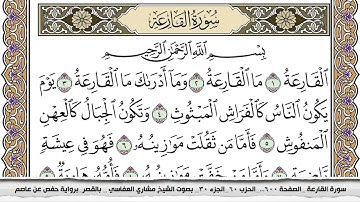 سُورَةُ القَارِعَةِ
بِسْمِ اللَّهِ الرَّحْمَٰنِ الرَّحِيمِ
الْقَارِعَةُ ١ مَا الْقَارِعَةُ ٢ وَمَا أَدْرَىٰكَ مَا الْقَارِعَةُ ٣ يَوْمَ
يَكُونُ النَّاسُ كَالْفَرَاشِ الْمَبْثُوثِ ٤ وَتَكُونُ الْجِبَالُ كَالْعِهْنِ
الْمَنفُوشِ ٥ فَأَمَّا مَن ثَقُلَتْ مَوَٰزِينُهُ ٦ فَهُوَ فِي عِيشَةٍ
سورة القارعة _ الصفحة ٦٠٠ _ الحزب ٦٠ _ الجزء ٣٠ _ بصوت الشيخ مشاري العفاسي _ بالقصر برواية حفص عن عاصم